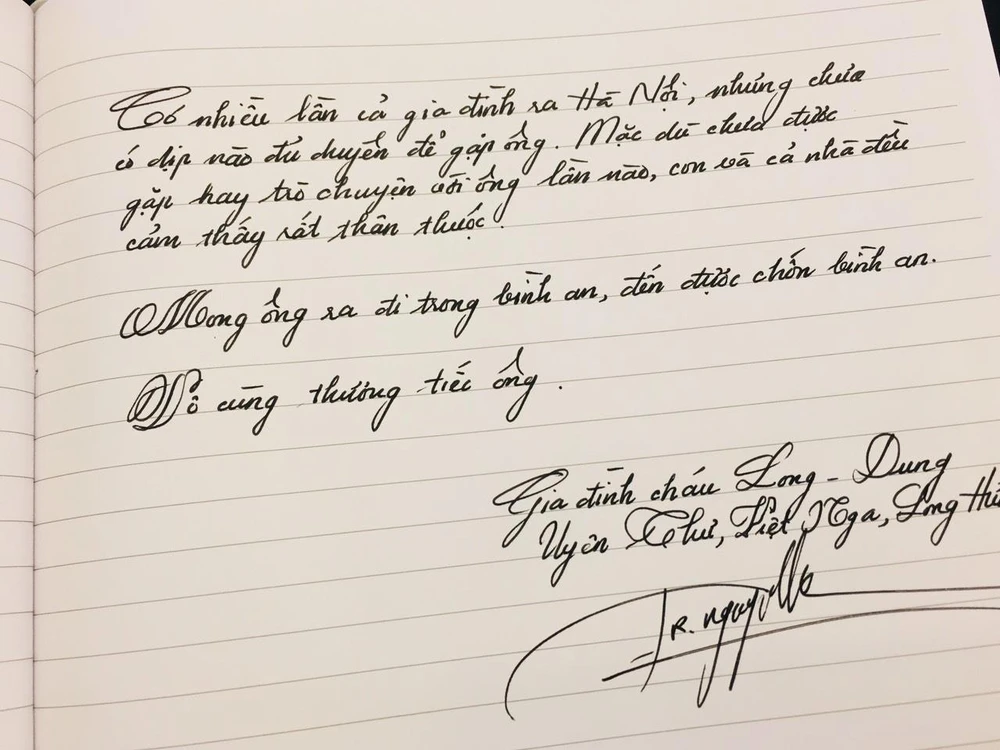 Có nhiều lần cả gia đình ra Hà Nội, nhưng chưa
có dịp nào đủ duyên để gặp ông. Mặc dù chưa được
gặp hay trò chuyện với ông lần nào, con và cả nhà đều
cảm thấy rất thân thuộc.
Mong ông ra đi trong bình an, đến được chốn bình an.
Vô cùng thương tiếc ông.
Gia đình cháu Long - Dung
Uyên Thư, Việt Nga, Long